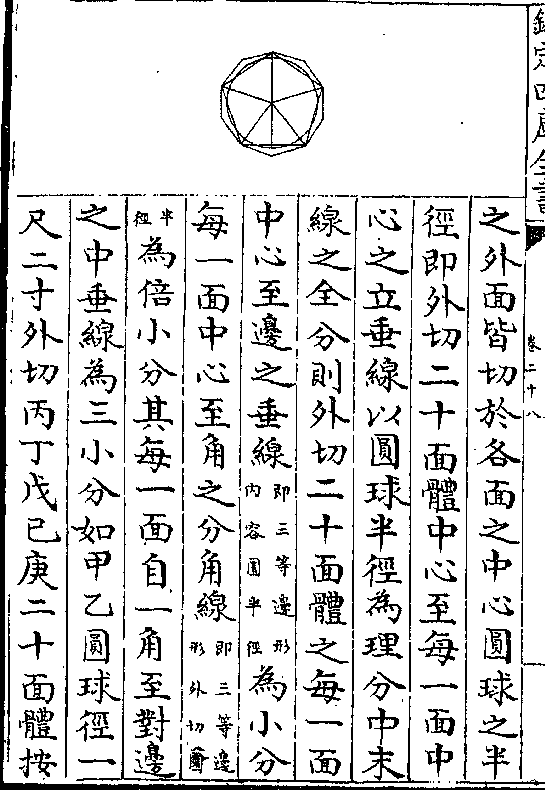 欽定四庫全書
卷二十八
之外面皆切於各面之中心圓球之半
徑即外切二十面體中心至每一面中
心之立垂線以圓球半徑為理分中末
線之全分則外切二十面體之每一面
中心至邊之垂線即三等邊形內容圓半徑為小分
每一面中心至角之分角線即三等邊形外切圓
半徑為倍小分其每一面自一角至對邊
之中垂線為三小分如甲乙圓球徑一
尺二寸外切丙丁戊己庚二十面體按